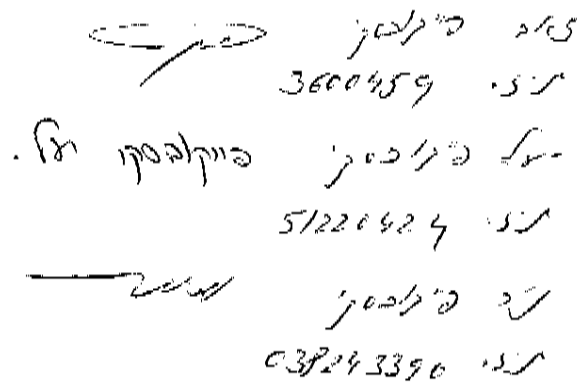 זאב פיקובסקי
ת.ז. 3600459
יעל פיקובסקי פייקובסקי יעל.
ת.ז. 51220424
פיקובסקי
ת.ז. 038243390